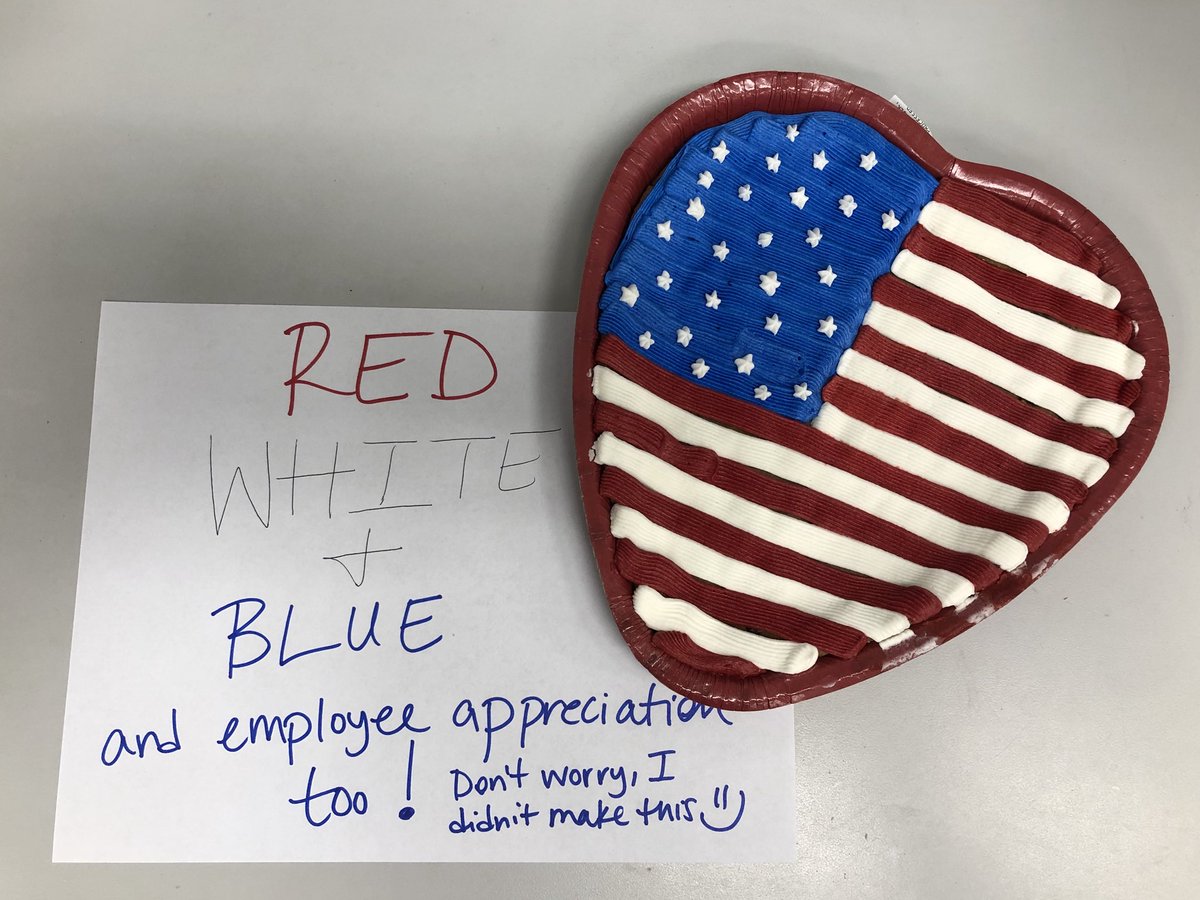 RED
WHITE
+
BLUE
and employee appreciation
too! Don't worry, I
didn't make this